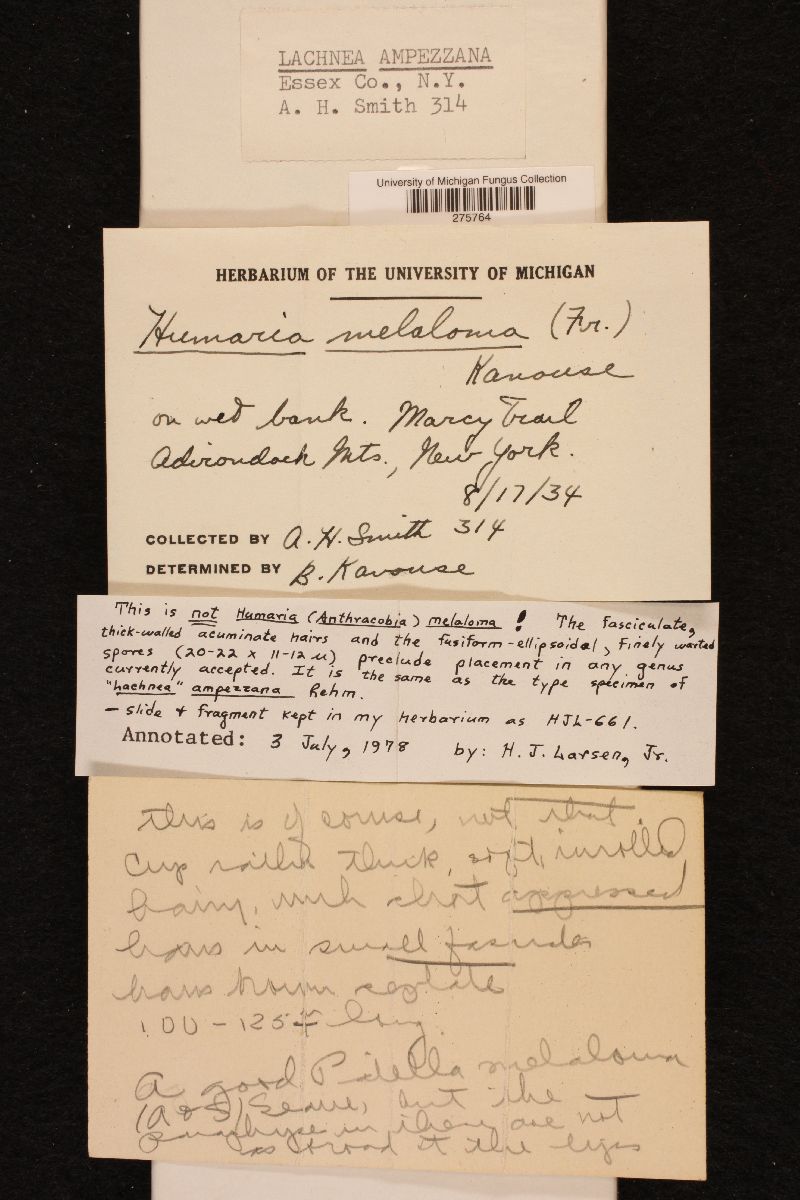 LACHNEA AMPEZZANA
Essex Co., N.Y.
A. H. Smith 314
University of Michigan Fungus Collection
275764
HERBARIUM OF THE UNIVERSITY OF MICHIGAN
Humaria melaloma (Fr.)
Kanouse
on wet bank. Marcy Trail
Adirondack Mts., New York.
8/17/34
COLLECTED BY A. H. Smith 314
DETERMINED BY B. Kanouse
This is not Humaria (Anthracobia) melaloma! The fasciculate,
thick-walled acuminate hairs and the fusiform-ellipsoidal, finely warted
spores (20-22 x 11-12 µ) preclude placement in any genus
currently accepted. It is the same as the type specimen of
"Lachnea" ampezzana Rehm.
- slide & fragment kept in my herbarium as HJL-661.
Annotated: 3 July, 1978 by: H. J. Larsen, Jr.
this is of course, not that.
Cup rather thick, soft, inrolled
hairy, with short appressed
hairs in small fascicles
hairs brown septate
100-125 long.
A good Patella melaloma
(A & S) Seaver, but the
in them are not
as broad at the tips